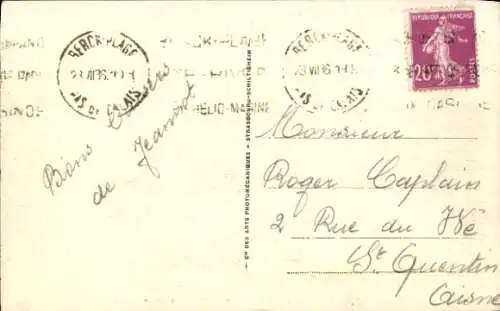 BERCK-PLAGE
PAS DE CALAIS
BERCK-PLAGE
PAS DE CALAIS
HELIO-MARINE
REPUBLIQUE FRANÇAISE
20
POSTES
Bons Baisers
de Jeannot
Cie DES ARTS PHOTOMÉCANIQUES - STRASBOURG-SCHILTIGHEIM
Monsieur
Roger Caplain
2 Rue du
St Quentin
Aisne